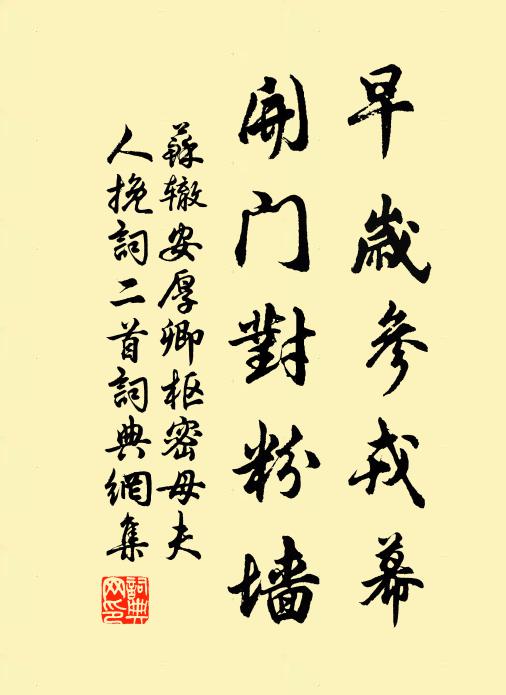 早歲參戎幕
開门對粉墙
蘇辙安厚卿枢密母夫
人挽詞二首詞典網集
詞典网印